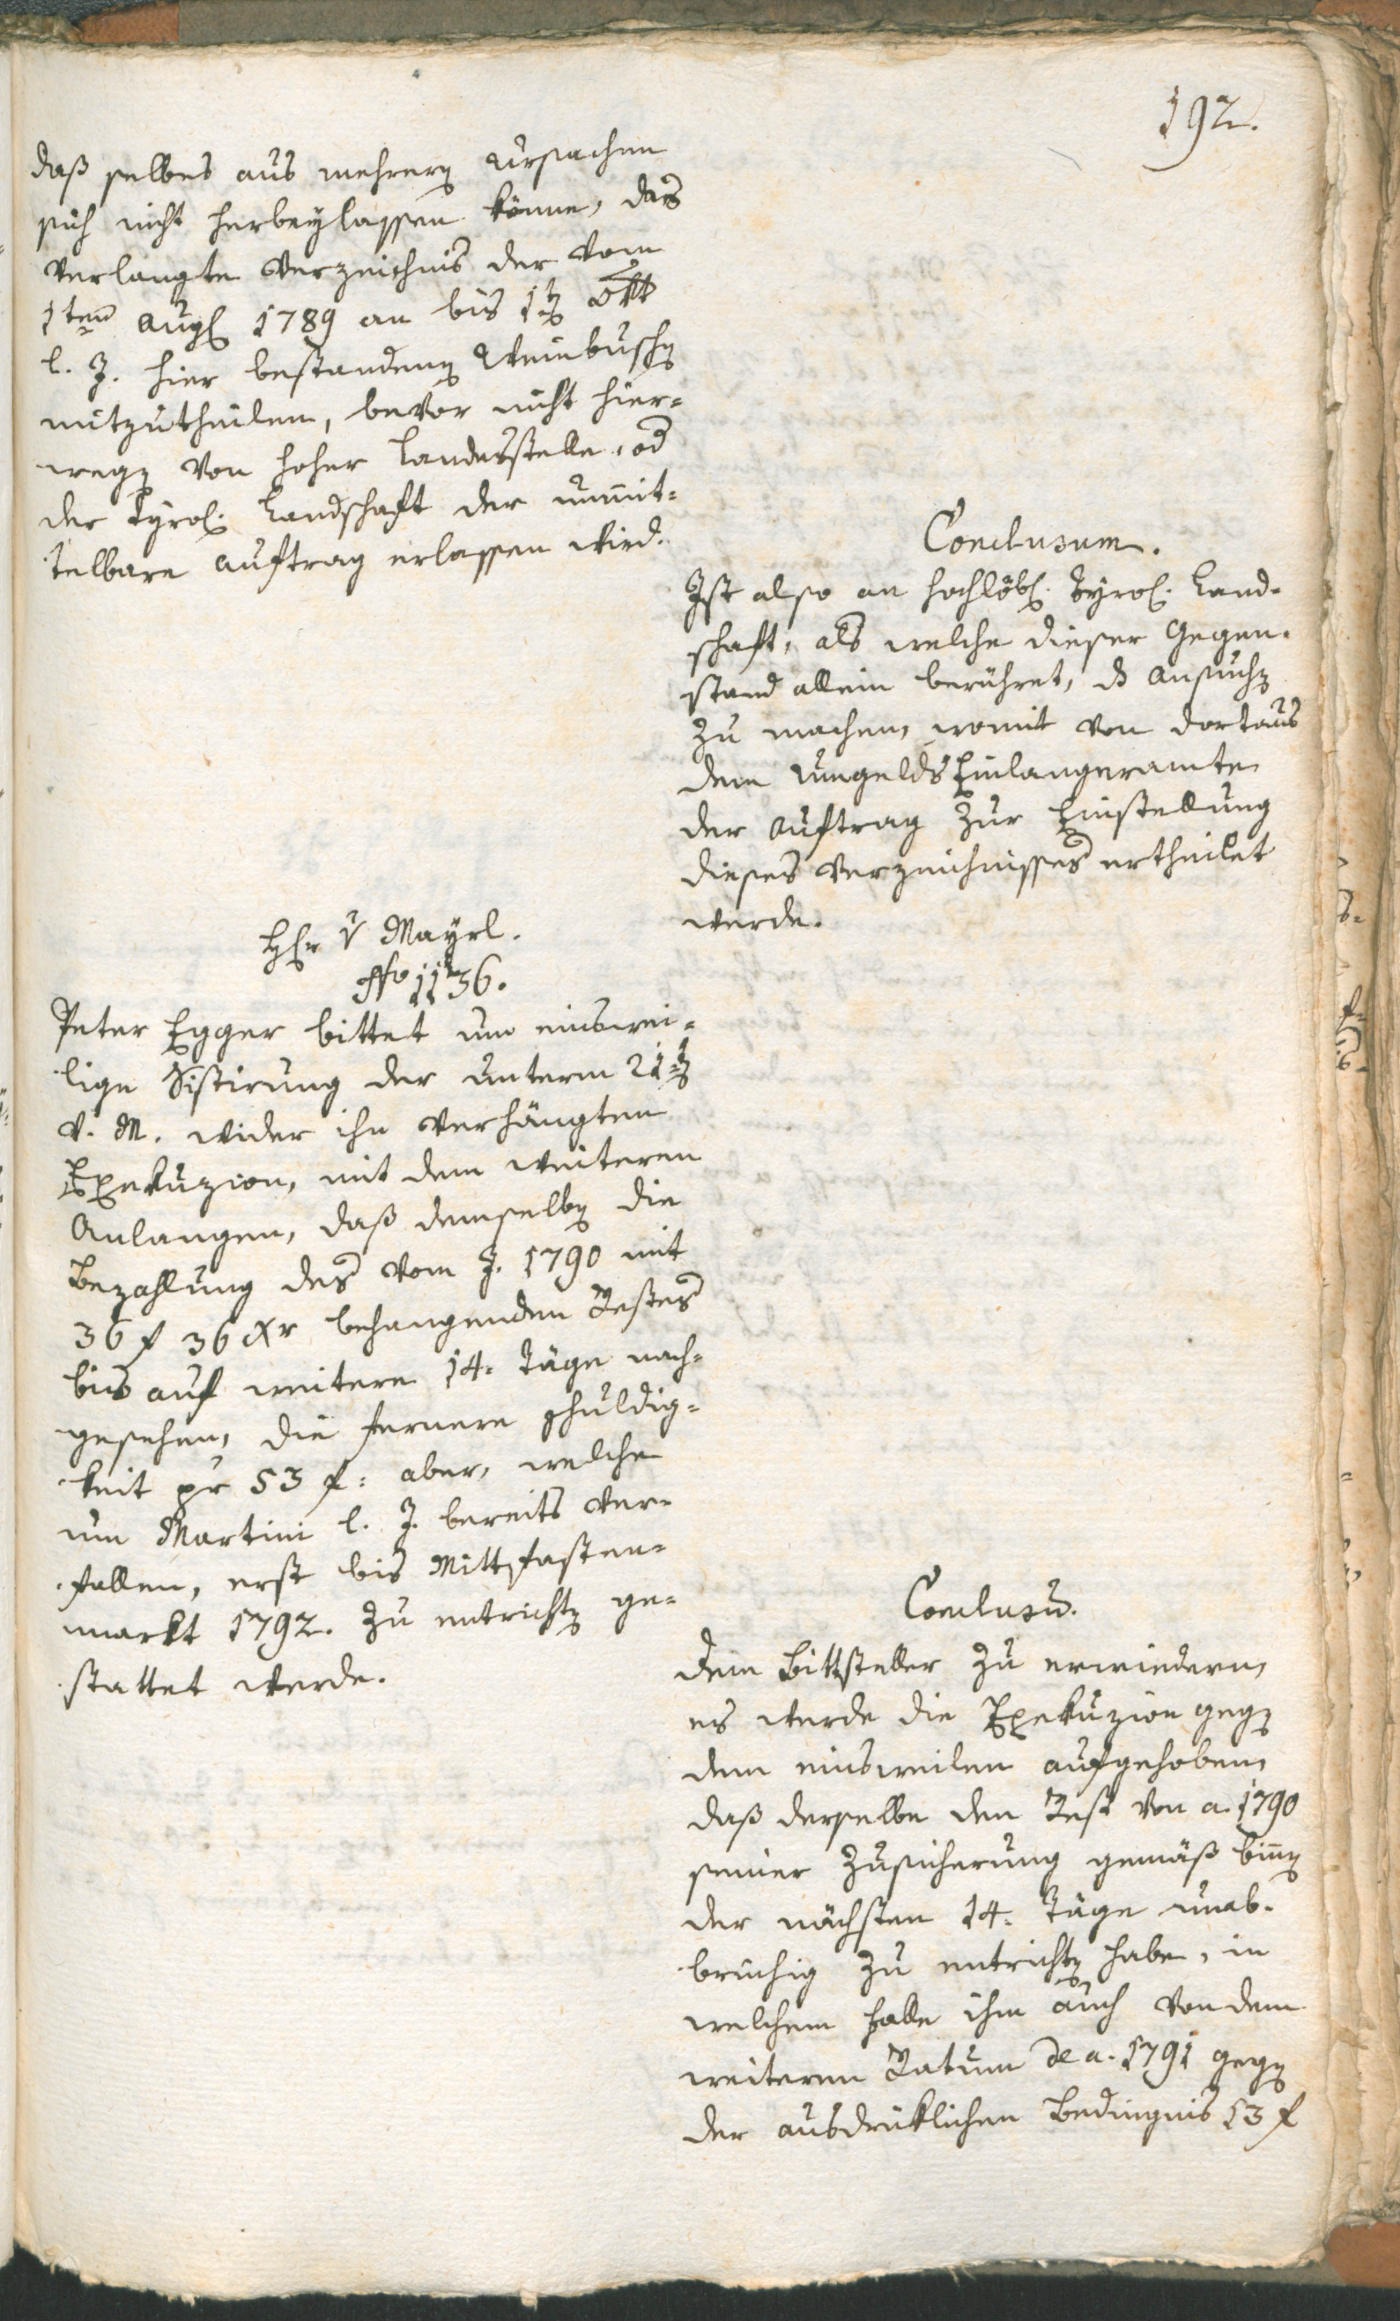 192.
daß selbes aus mehrern Ursachen
sich nicht herbeylassen könne, das
verlangte Verzeichnis der vom
1ten Augl 1789 an bis 1t Okt
l. J. hier bestandenen Weinbusch
mitzutheilen, bevor nicht hier-
wegen von hoher Landesstelle, od
der Tyrol. Landschaft der unmit-
telbare Auftrag erlassen wird.
Conclusum.
Ist also an hochlöbl. Tyrol. Land-
schaft, als welche dieser Gegen-
stand allein berühret, d Ansuchen
zu machen, womit von dortaus
dem Umgelds Einlangeramte
der Auftrag zur Einstellung
dieses Verzeichnisses ertheilet
werde.
Hr v Mayrl.
No 1136.
Peter Egger bittet um einswei-
lige Sistirung der unterm 21t
v. M. wider ihn verhängten
Exekuzion, mit dem weiteren
Anlangen, daß demselben die
Bezahlung des vom J. 1790 mit
36 f 36 xr behangenden Restes
bis auf weitere 14. Täge nach-
gesehen, die fernere Schuldig-
keit pr 53 f: aber, welche
um Martini l. J. bereits ver-
fallen, erst bis Mittfasten-
markt 1792. zu entrichten ge-
stattet werde.
Conclusū.
Dem Bittsteller zu erwiedern,
es werde die Exekuzion gegen
dem einsweilen aufgehoben,
daß derselbe den Rest von a. 1790
seiner Zusicherung gemäß binnen
der nächsten 14. Täge unab-
brüchig zu entrichten habe, in
welchem Falle ihm auch von dem
weiteren Ratum de a. 1791 gegen
der ausdrüklichen Bedingnis 53 f